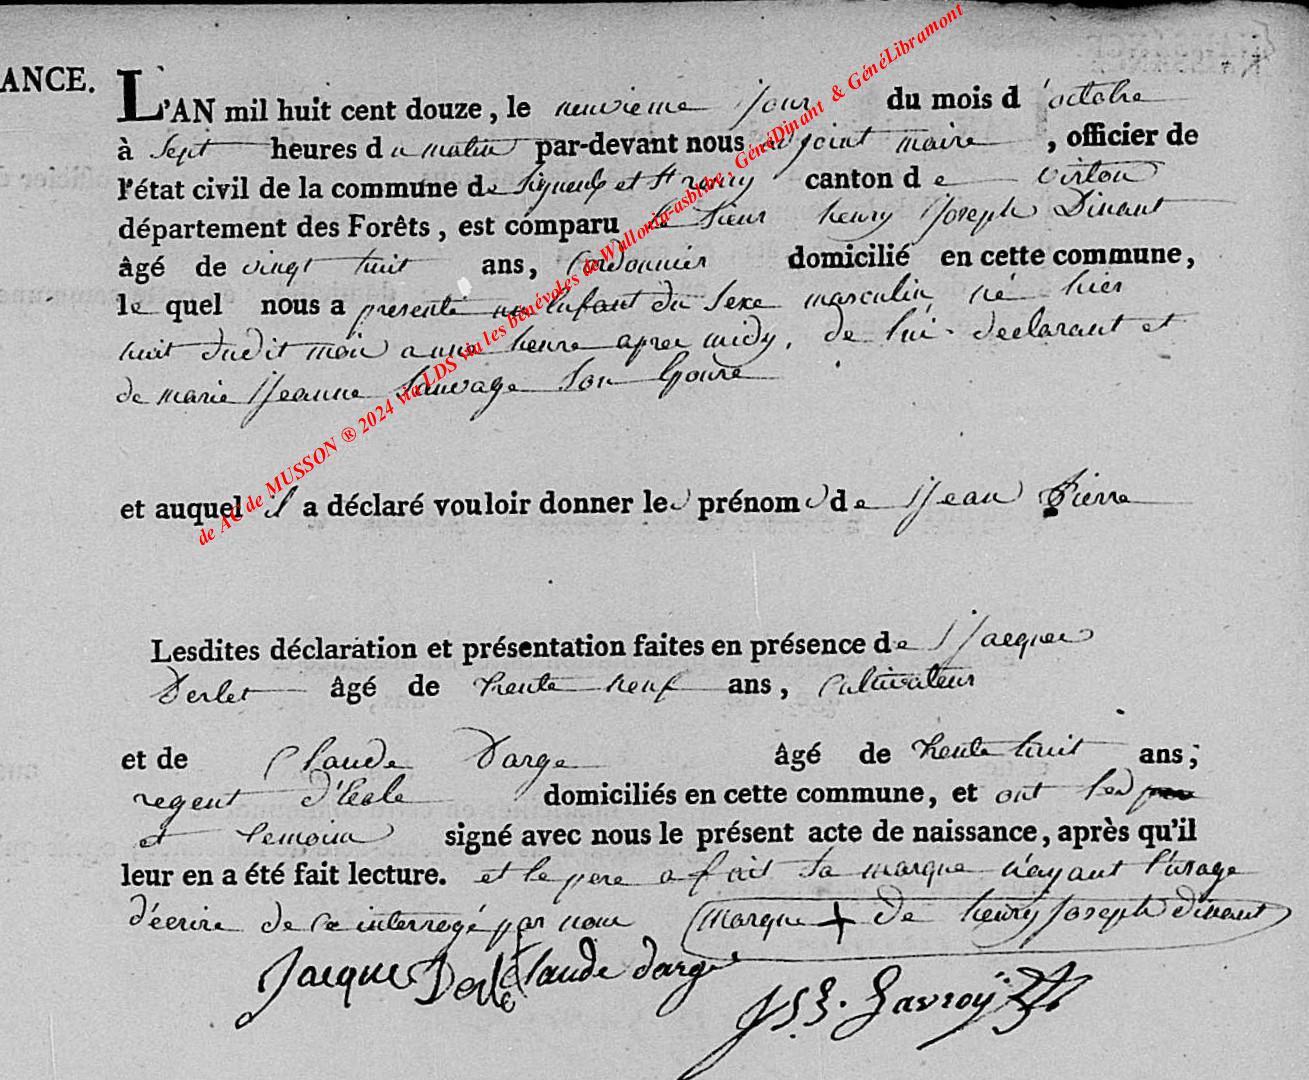 ANCE.
L'AN mil huit cent douze, le neuvieme jour du mois d'octobre
à sept heures du matin par-devant nous adjoint maire, officier de
l'état civil de la commune de Signeulx et St remy canton de virton
département des Forêts, est comparu le Sieur henry Joseph Dinant
âgé de vingt huit ans, Cordonnier domicilié en cette commune,
le quel nous a presenté un Enfant du Sexe masculin né hier
huit dudit mois a une heure apres midy, de lui declarant et
de marie Jeanne Sauvage Son Epouse
et auquel il a déclaré vouloir donner les prénoms de Jean Pierre
Lesdites déclaration et présentation faites en présence de Jacques
Derlet âgé de trente neuf ans, Cultivateur
et de Claude Darge âgé de trente huit ans;
regent d'Ecole domiciliés en cette commune, et ont les
et temoins signé avec nous le présent acte de naissance, après qu'il
leur en a été fait lecture. et le pere a fait sa marque n'ayant l'usage
d'écrire de ce interrogé par nous marque + de henry Joseph dinant
Jacque Derlet Claude darge
Gavroy
de AC de MUSSON ® 2024 via LDS via les bénévoles de Wallonia-asbl.be, GénéDinant & GénéLibramont